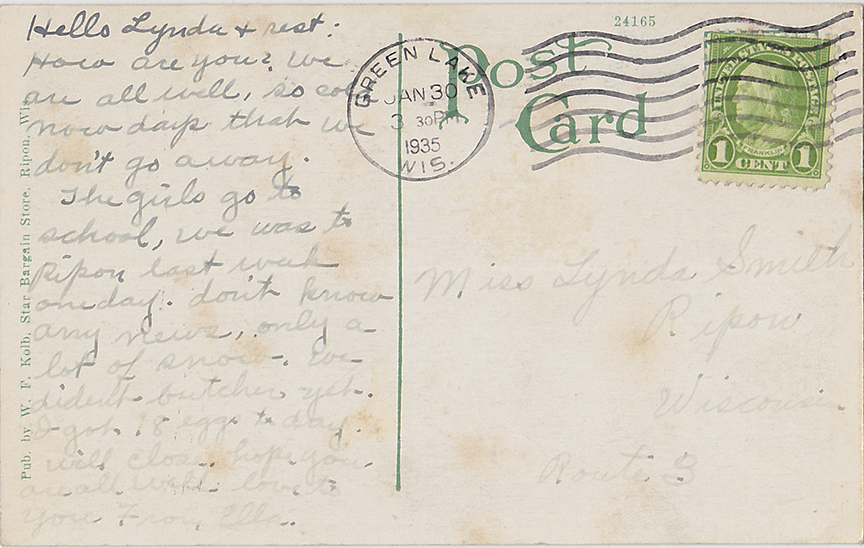 Hello Lynda & rest:
How are you? We
are all well, so cold
now days that we
don't go away.
The girls go to
school, we was to
Ripon last week
one day. don't know
any news, only a
lot of snow. We
dident butcher yet.
I got 18 eggs to day.
will close, hope you
are all well love to
you From Ella.
Pub. by W. F. Kolb, Star Bargain Store, Ripon, Wis.
24165
Post
Card
GREEN LAKE
JAN 30
3 30PM
1935
WIS.
FRANKLIN
1 CENT 1
Miss Lynda Smith
Ripon
Wisconsin
Route 3